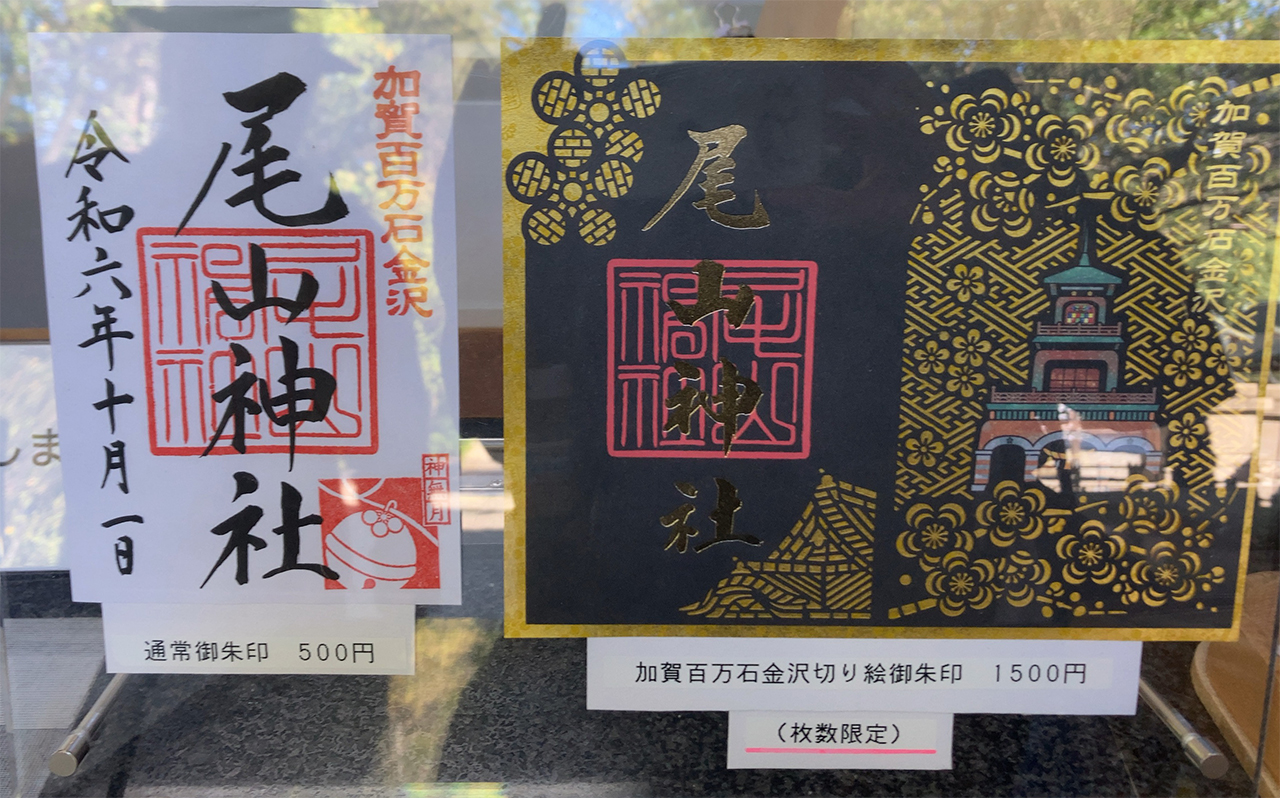 加賀百万石金沢
尾山神社
令和六年十月一日
神無月
通常御朱印 500円
しま
加賀百万石金沢
尾山神社
加賀百万石金沢切り絵御朱印 1500円
(枚数限定)